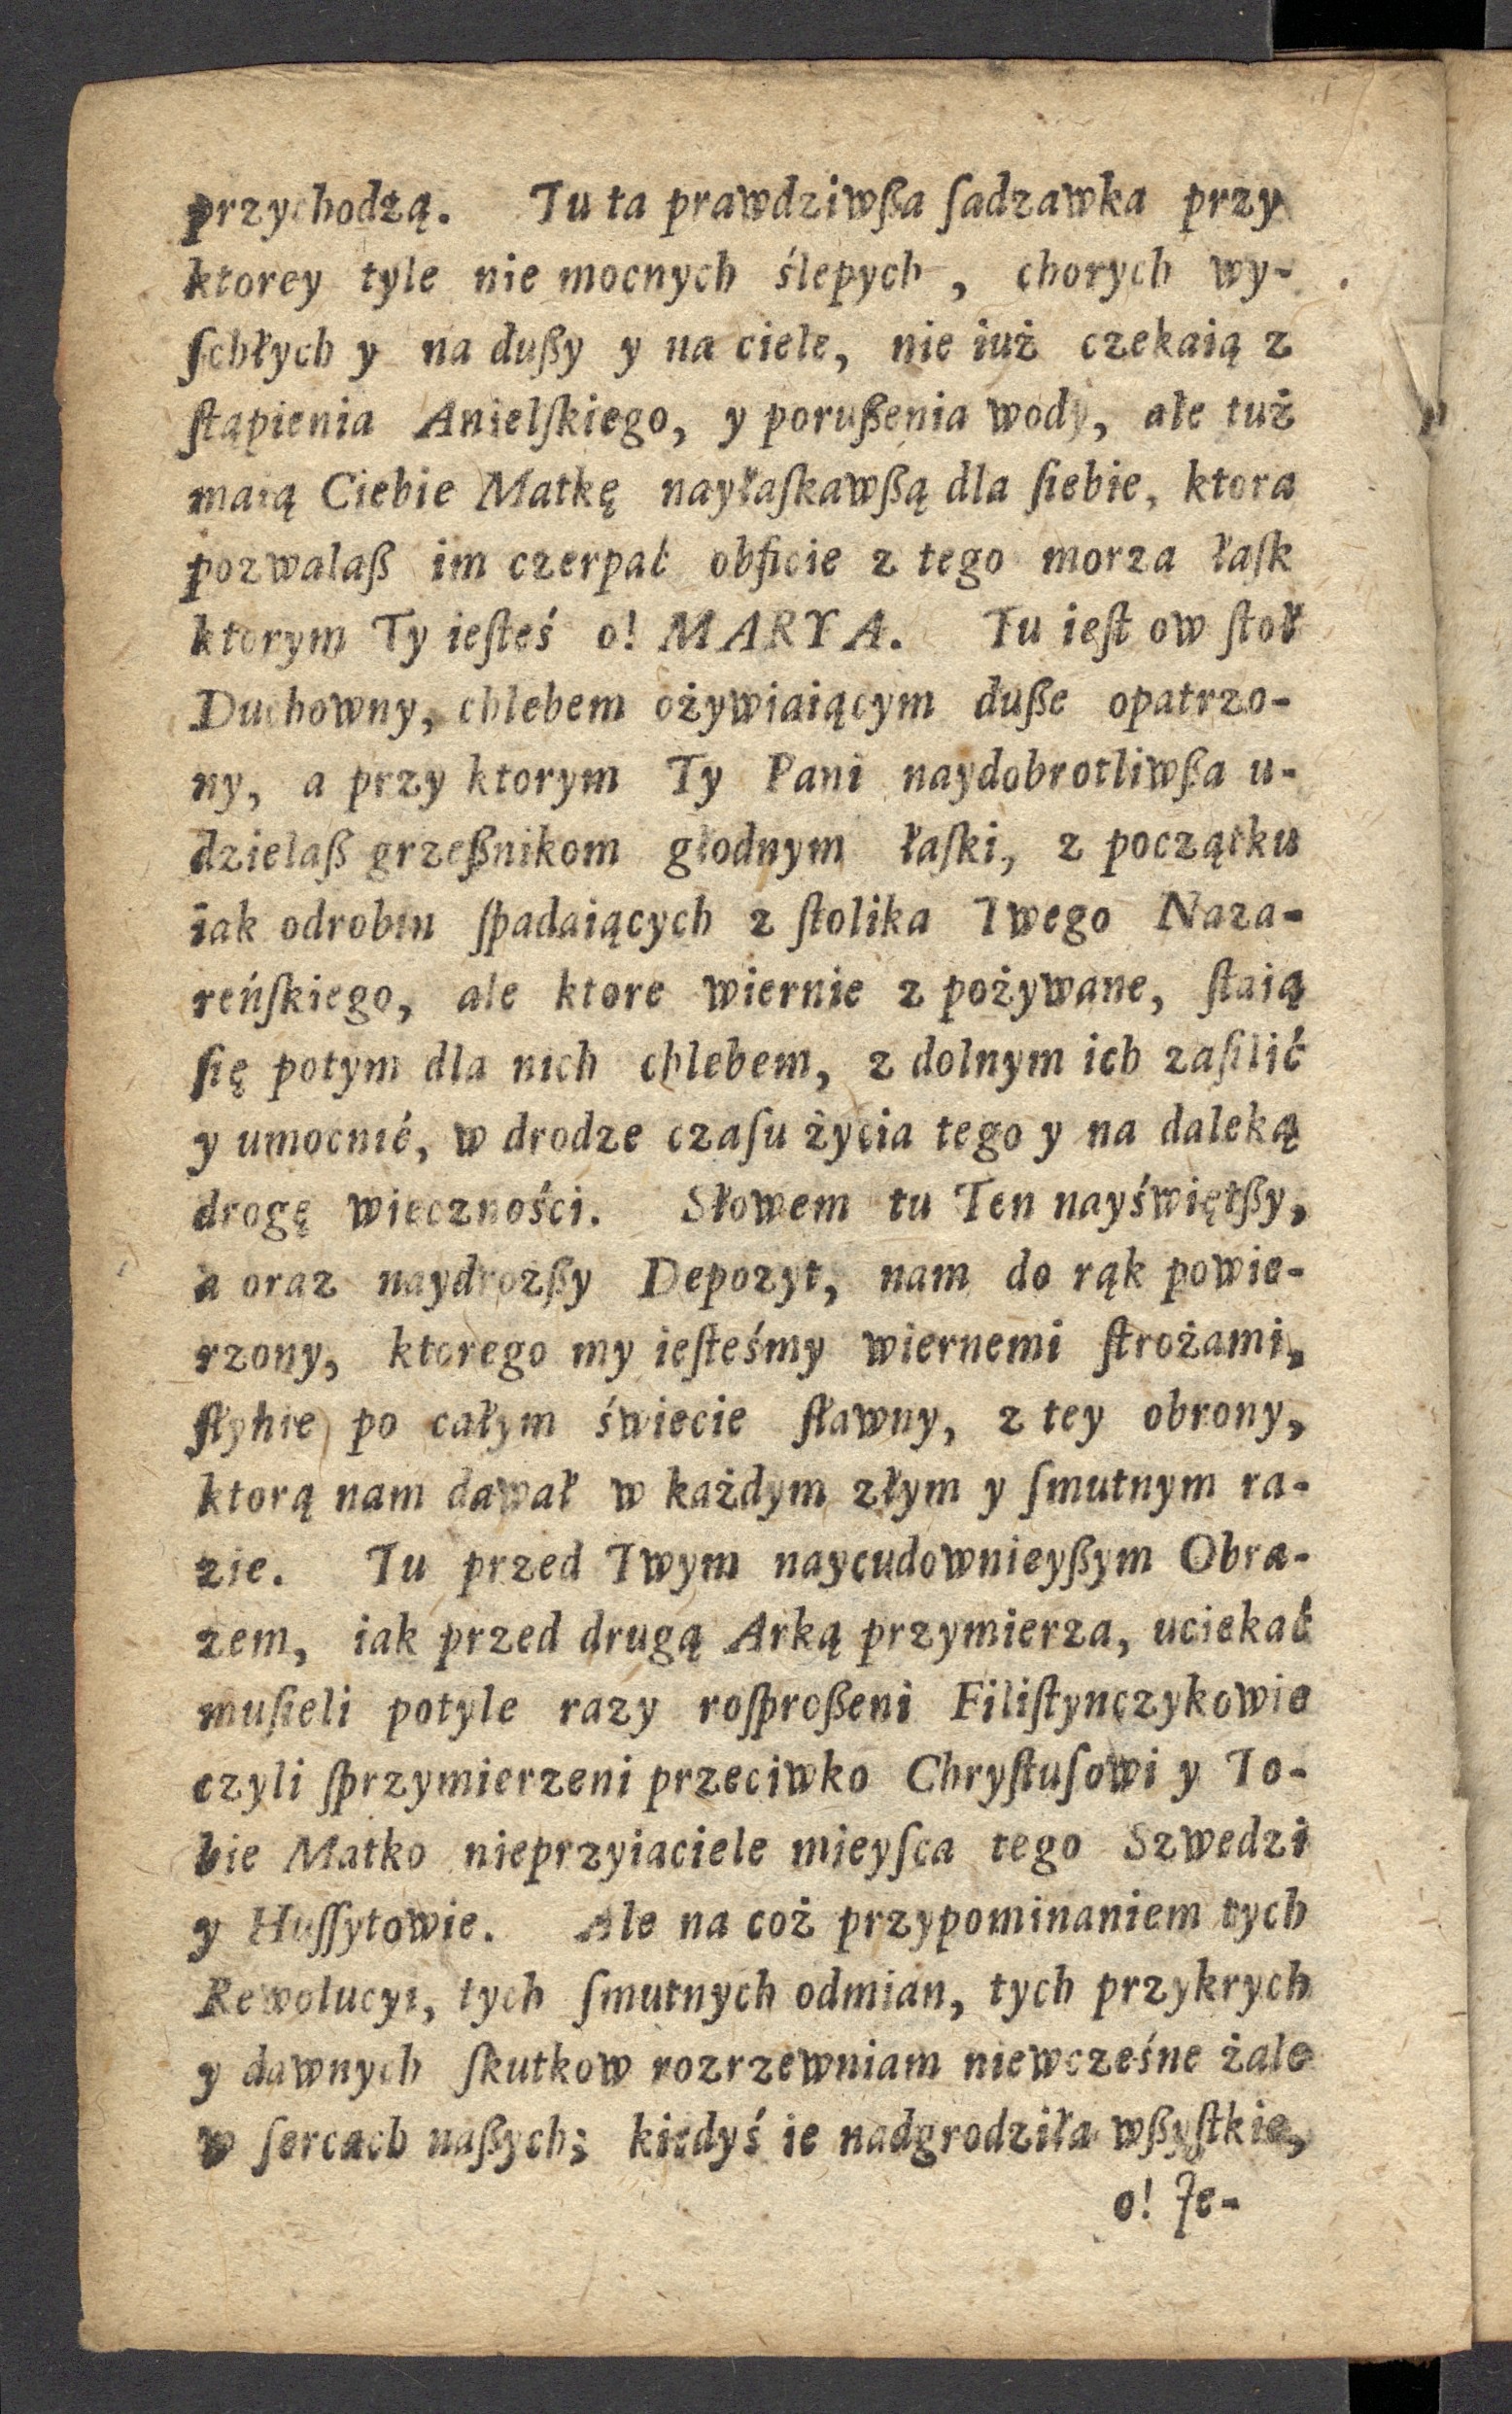 przychodzą. Tu ta prawdziwßa ſadzawka przy
ktorey tyle nie mocnych ślepych, chorych wy-
ſchłych y na dußy y na ciele, nie iuż czekaią z
ſtąpienia Anielſkiego, y porußenia wody, ale tuż
maią Ciebie Matkę nayłaſkawßą dla ſiebie, ktora
pozwalaß im czerpać obficie z tego morza łaſk
ktorym Ty ieſteś o! MARYA. Tu ieſt ow ſtoł
Duchowny, chlebem ożywiaiącym duße opatrzo-
ny, a przy ktorym Ty Pani naydobrotliwßa u-
dzielaß grzeßnikom głodnym łaſki, z początku
iak odrobin ſpadaiących z ſtolika Twego Naza-
reńſkiego, ale ktore wiernie z pożywane, ſtaią
ſię potym dla nich chlebem, z dolnym ich zaſilić
y umocnić, w drodze czaſu życia tego y na daleką
drogę wieczności. Słowem tu Ten nayświętßy,
a oraz naydrożßy Depozyt, nam do rąk powie-
rzony, ktorego my ieſteśmy wiernemi ſtrożami,
ſłynie po całym świecie ſławny, z tey obrony,
ktorą nam dawał w każdym złym y ſmutnym ra-
zie. Tu przed Twym naycudownieyßym Obra-
zem, iak przed drugą Arką przymierza, uciekać
muſieli potyle razy roſproßeni Filiſtynczykowie
czyli ſprzymierzeni przeciwko Chryſtuſowi y To-
bie Matko nieprzyiaciele mieyſca tego Szwedzi
y Huſſytowie. Ale na coż przypominaniem tych
Rewolucyi, tych ſmutnych odmian, tych przykrych
y dawnych ſkutkow rozrzewniam niewcześne żale
w ſercach naßych; kiedyś ie nadgrodziła wßyſtkie,
o! Je-